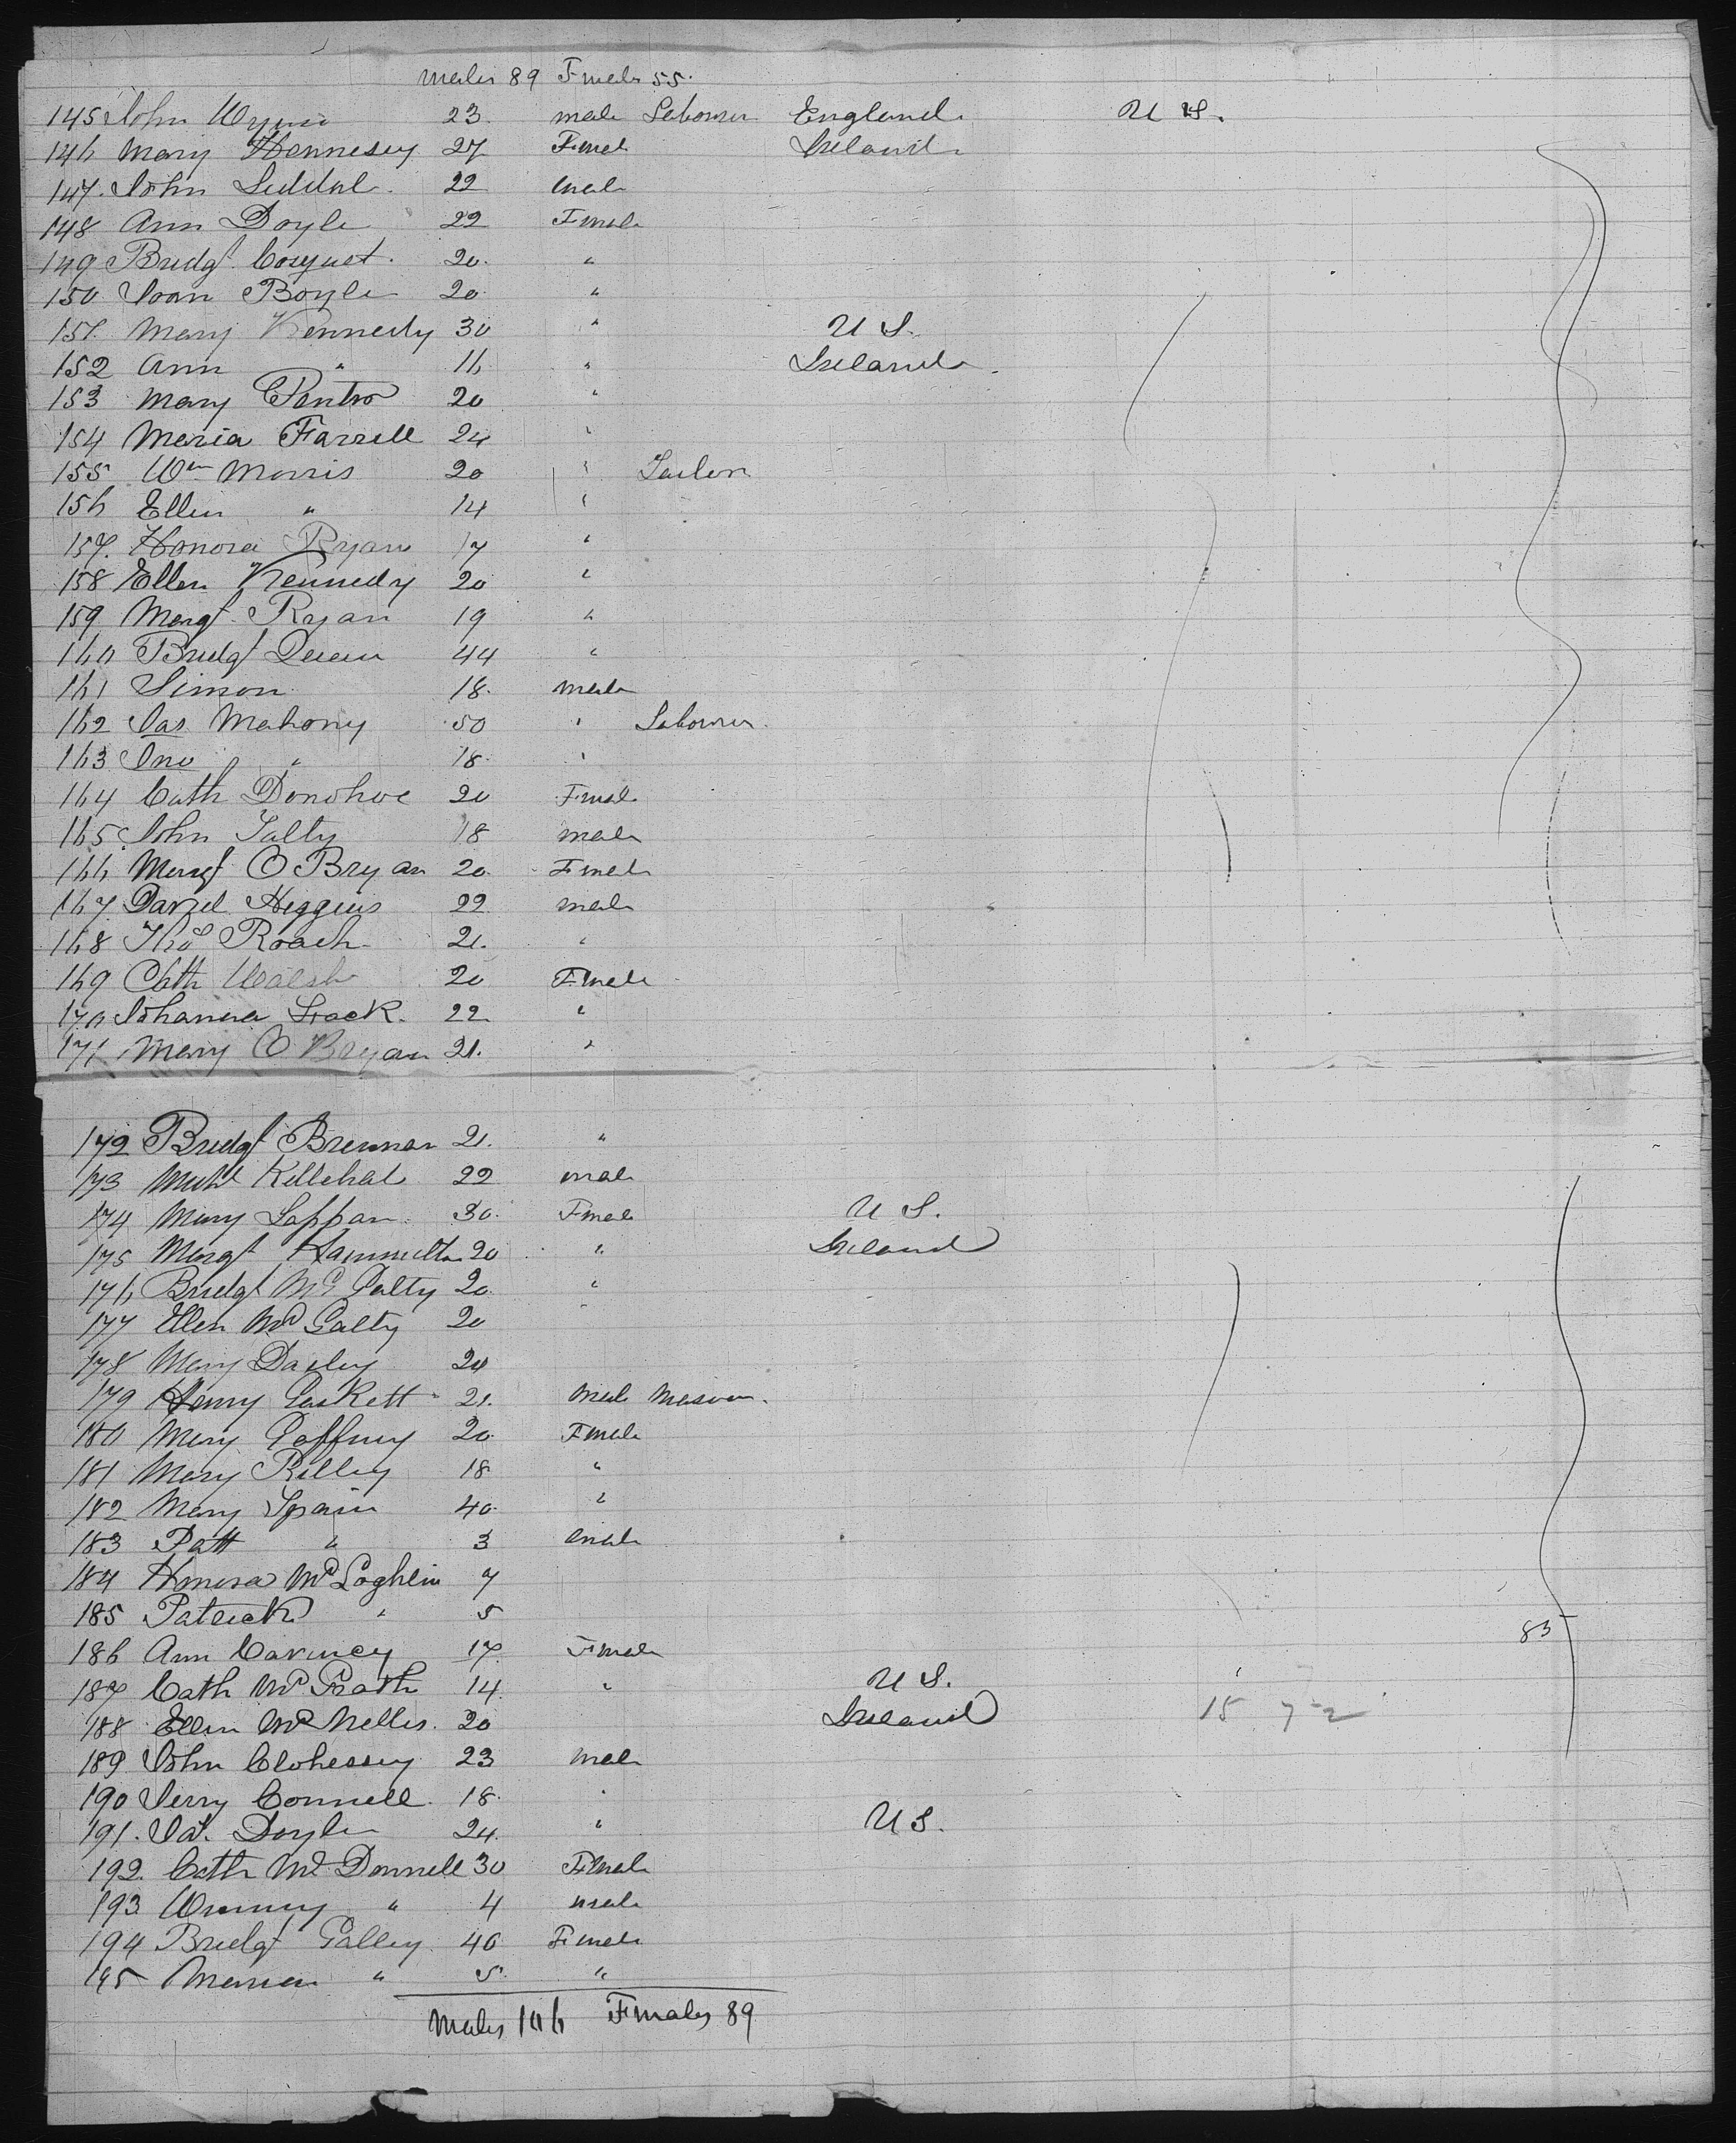 Males 89 Fmals 55.
145 John Wynn 23 male Labourer England U S.
146 Mary Hennesey 27 Fmal Ireland
147. John Siddal 22 male
148 Ann Doyle 22 Fmale
149 Bridgt 20 "
150 Joan Boyle 20 "
151. Mary Kennedy 30 " U S.
152 Ann " 16 " Ireland
153 Mary 20 "
154 Maria Farrell 24 "
155 Wm Morris 20 " Tailor
156 Ellen " 14 "
157. Honora Ryan 17 "
158 Ellen Kennedy 20 "
159 Margt Ryan 19 "
160 Bridgt Queen 44 "
161 Simon 18. male
162 Jas Mahony 50 " Labourer
163 Jno " 18 "
164 Cath Donohoe 20 Fmale
165 John Talty 18 male
166 Margt O Bryan 20 Fmale
167 Daniel Higgins 22 male
168 Thos Roach 21. "
169 Cath Walsh 20 Fmale
170 Johanna Frack 22 "
171 Mary O Bryan 21. "
172 Bridgt Brennan 21. "
173 Michl Killehal 22 male
174 Mary Lappan 30. Fmal U S.
175 Margt Hammilton 20 " Ireland
176 Bridgt Mc Galty 20 "
177 Ellen Mc Galty 20
178 Mary Dailey 20
179 Henry Gaskett 21. Male Mason.
180 Mary Gaffney 20 Fmale
181 Mary Rilley 18 "
182 Mary Spain 40. "
183 Patt " 3 male
184 Honora Mc Loghlin 7
185 Patrick " 5 83
186 Ann Caviney 17. Fmale
187 Cath Mc Grath 14 " U S.
188 Ellen Mc Nellis. 20 Ireland 15 72
189 John Clohessey 23 male
190 Jerry Connell. 18. "
191. Jas. Doyle 24. " U S.
192. Cath Mc Donnell 30 Fmale
193 Wmmy " 4 male
194 Bridgt Galley 40 Fmale
195 Marian " 5. "
Males 106 Fmales 89